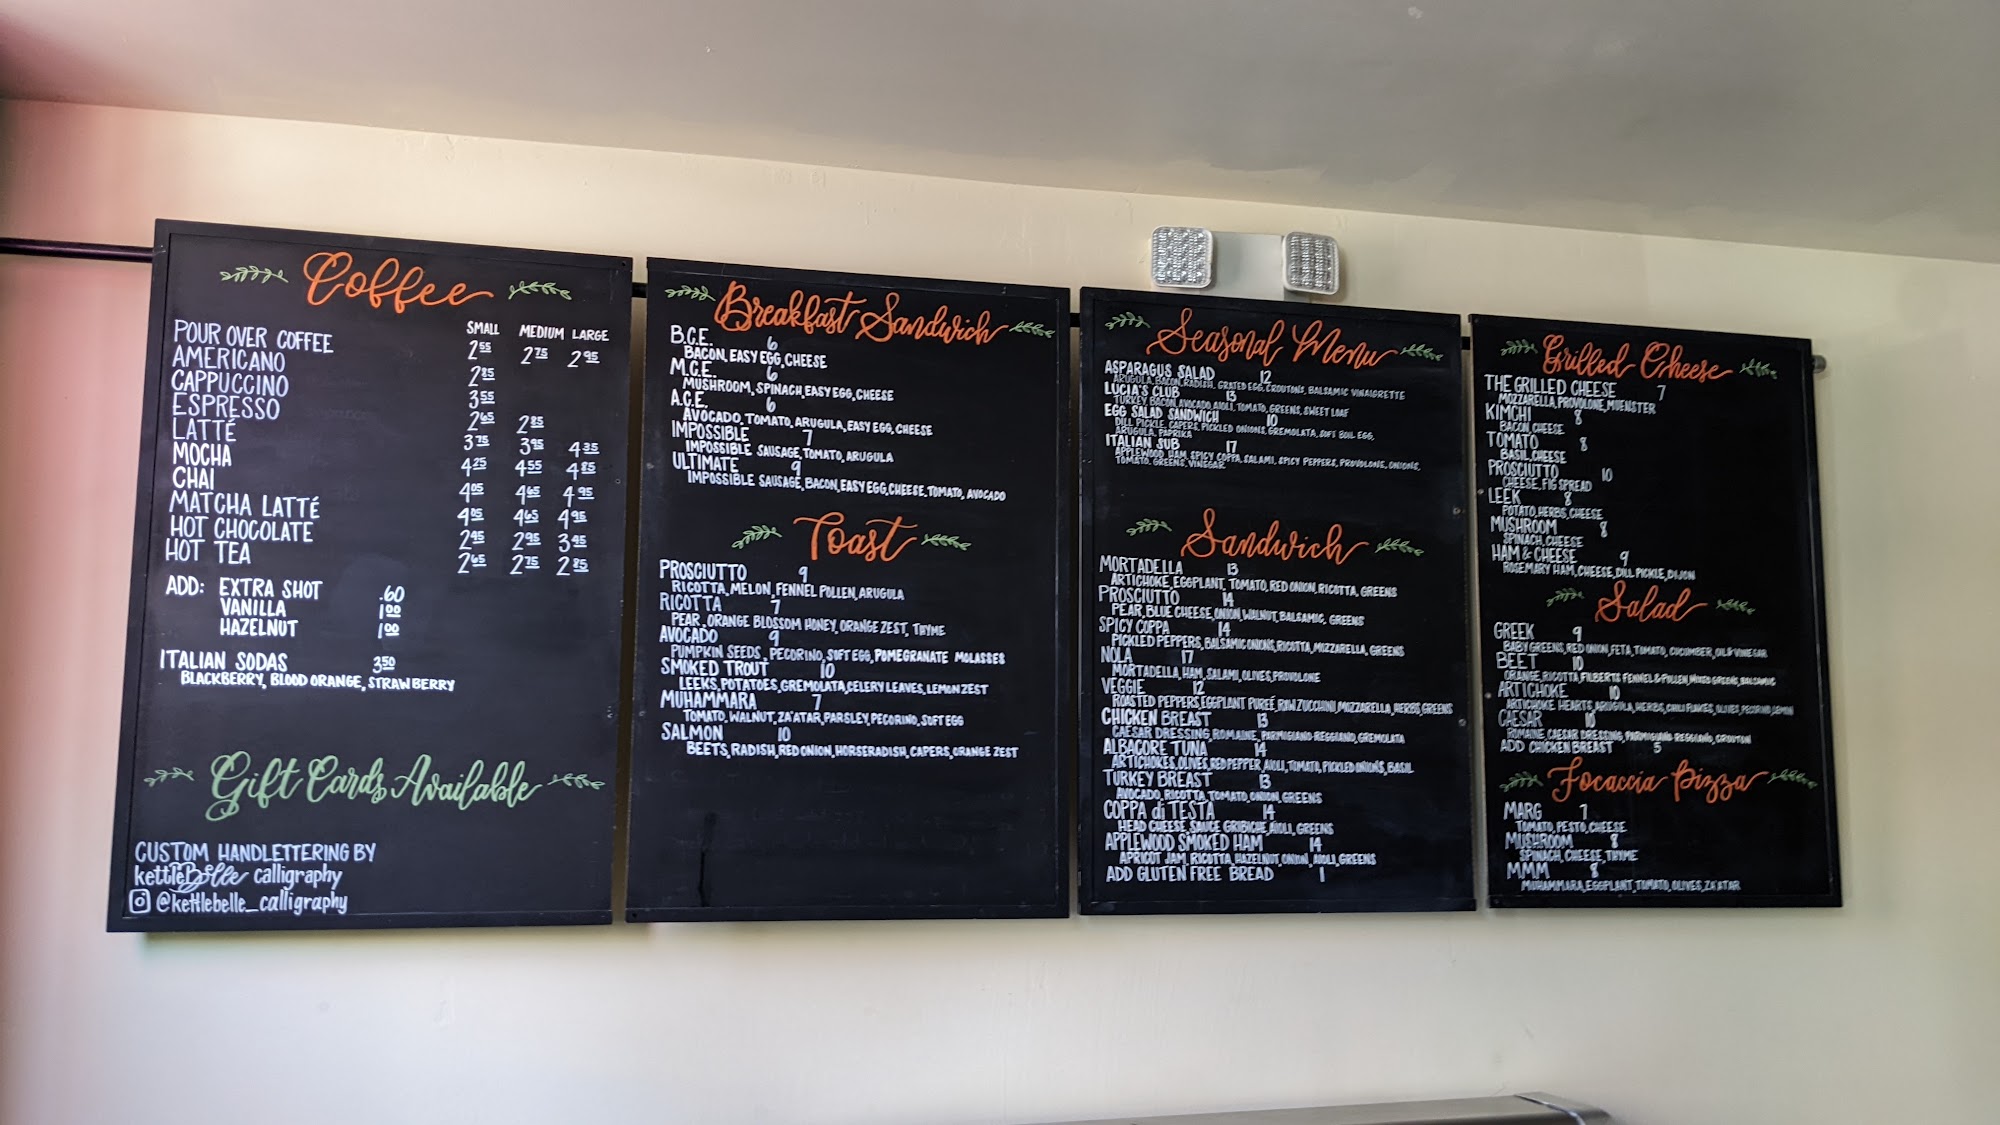 Coffee
SMALL MEDIUM LARGE
POUR OVER COFFEE 2.55 2.75 2.95
AMERICANO 2.85
CAPPUCCINO 3.55
ESPRESSO 2.65 2.85
LATTÉ 3.75 3.95 4.35
MOCHA 4.25 4.55 4.85
CHAI 4.05 4.65 4.95
MATCHA LATTÉ 4.05 4.65 4.95
HOT CHOCOLATE 2.45 2.95 3.45
HOT TEA 2.65 2.75 2.85
ADD: EXTRA SHOT .60
VANILLA 1.00
HAZELNUT 1.00
ITALIAN SODAS 3.50
BLACKBERRY, BLOOD ORANGE, STRAWBERRY
Gift Cards Available
CUSTOM HANDLETTERING BY
kettleBelle calligraphy
@kettlebelle_calligraphy
Breakfast Sandwich
B.C.E. 6
BACON, EASY EGG, CHEESE
M.C.E. 6
MUSHROOM, SPINACH, EASY EGG, CHEESE
A.C.E. 6
AVOCADO, TOMATO, ARUGULA, EASY EGG, CHEESE
IMPOSSIBLE 7
IMPOSSIBLE SAUSAGE, TOMATO, ARUGULA
ULTIMATE 9
IMPOSSIBLE SAUSAGE, BACON, EASY EGG, CHEESE, TOMATO, AVOCADO
Toast
PROSCIUTTO 9
RICOTTA, MELON, FENNEL POLLEN, ARUGULA
RICOTTA 7
PEAR, ORANGE BLOSSOM HONEY, ORANGE ZEST, THYME
AVOCADO 9
PUMPKIN SEEDS, PECORINO, SOFT EGG, POMEGRANATE MOLASSES
SMOKED TROUT 10
LEEKS, POTATOES, GREMOLATA, CELERY LEAVES, LEMON ZEST
MUHAMMARA 7
TOMATO, WALNUT, ZA'ATAR, PARSLEY, PECORINO, SOFT EGG
SALMON 10
BEETS, RADISH, RED ONION, HORSERADISH, CAPERS, ORANGE ZEST
Seasonal Menu
ASPARAGUS SALAD 12
ARUGULA, BACON, RADISH, GRATED EGG, CROUTONS, BALSAMIC VINAIGRETTE
LUCIA'S CLUB 13
TURKEY, BACON, AVOCADO, AIOLI, TOMATO, GREENS, SWEET LOAF
EGG SALAD SANDWICH 10
DILL PICKLE, CAPERS, PICKLED ONIONS, GREMOLATA, SOFT BOIL EGG,
ARUGULA, PAPRIKA
ITALIAN SUB 17
APPLEWOOD HAM, SPICY COPPA, SALAMI, SPICY PEPPERS, PROVOLONE, ONIONS,
TOMATO, GREENS, VINEGAR
Sandwich
MORTADELLA 13
ARTICHOKE, EGGPLANT, TOMATO, RED ONION, RICOTTA, GREENS
PROSCIUTTO 14
PEAR, BLUE CHEESE, ONION, WALNUT, BALSAMIC, GREENS
SPICY COPPA 14
PICKLED PEPPERS, BALSAMIC ONIONS, RICOTTA, MOZZARELLA, GREENS
NOLA 17
MORTADELLA, HAM, SALAMI, OLIVES, PROVOLONE
VEGGIE 12
ROASTED PEPPERS, EGGPLANT PUREÉ, RAW ZUCCHINI, MOZZARELLA, HERBS, GREENS
CHICKEN BREAST 13
CAESAR DRESSING, ROMAINE, PARMIGIANO-REGGIANO, GREMOLATA
ALBACORE TUNA 14
ARTICHOKES, OLIVES, RED PEPPER, AIOLI, TOMATO, PICKLED ONIONS, BASIL
TURKEY BREAST 13
AVOCADO, RICOTTA, TOMATO, ONION, GREENS
COPPA di TESTA 14
HEAD CHEESE, SAUCE GRIBICHE, AIOLI, GREENS
APPLEWOOD SMOKED HAM 14
APRICOT JAM, RICOTTA, HAZELNUT, ONION, AIOLI, GREENS
ADD GLUTEN FREE BREAD 1
Grilled Cheese
THE GRILLED CHEESE 7
MOZZARELLA, PROVOLONE, MUENSTER
KIMCHI 8
BACON, CHEESE
TOMATO 8
BASIL, CHEESE
PROSCIUTTO 10
CHEESE, FIG SPREAD
LEEK 8
POTATO, HERBS, CHEESE
MUSHROOM 8
SPINACH, CHEESE
HAM & CHEESE 9
ROSEMARY HAM, CHEESE, DILL PICKLE, DIJON
Salad
GREEK 9
BABY GREENS, RED ONION, FETA, TOMATO, CUCUMBER, OIL & VINEGAR
BEET 10
ORANGE, RICOTTA, FILBERTS FENNEL & POLLEN, MIXED GREENS, BALSAMIC
ARTICHOKE 10
ARTICHOKE HEARTS, ARUGULA, HERBS, CHILI FLAKES, OLIVES, PECORINO, LEMON
CAESAR 10
ROMAINE, CAESAR DRESSING, PARMIGIANO-REGGIANO, CROUTON
ADD CHICKEN BREAST 5
Focaccia Pizza
MARG 7
TOMATO, PESTO, CHEESE
MUSHROOM 8
SPINACH, CHEESE, THYME
MMM 8
MUHAMMARA, EGGPLANT, TOMATO, OLIVES, ZA'ATAR